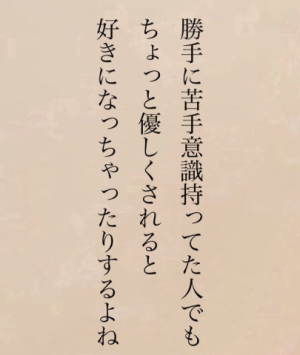 勝手に苦手意識持ってた人でも
ちょっと優しくされると
好きになっちゃったりするよね